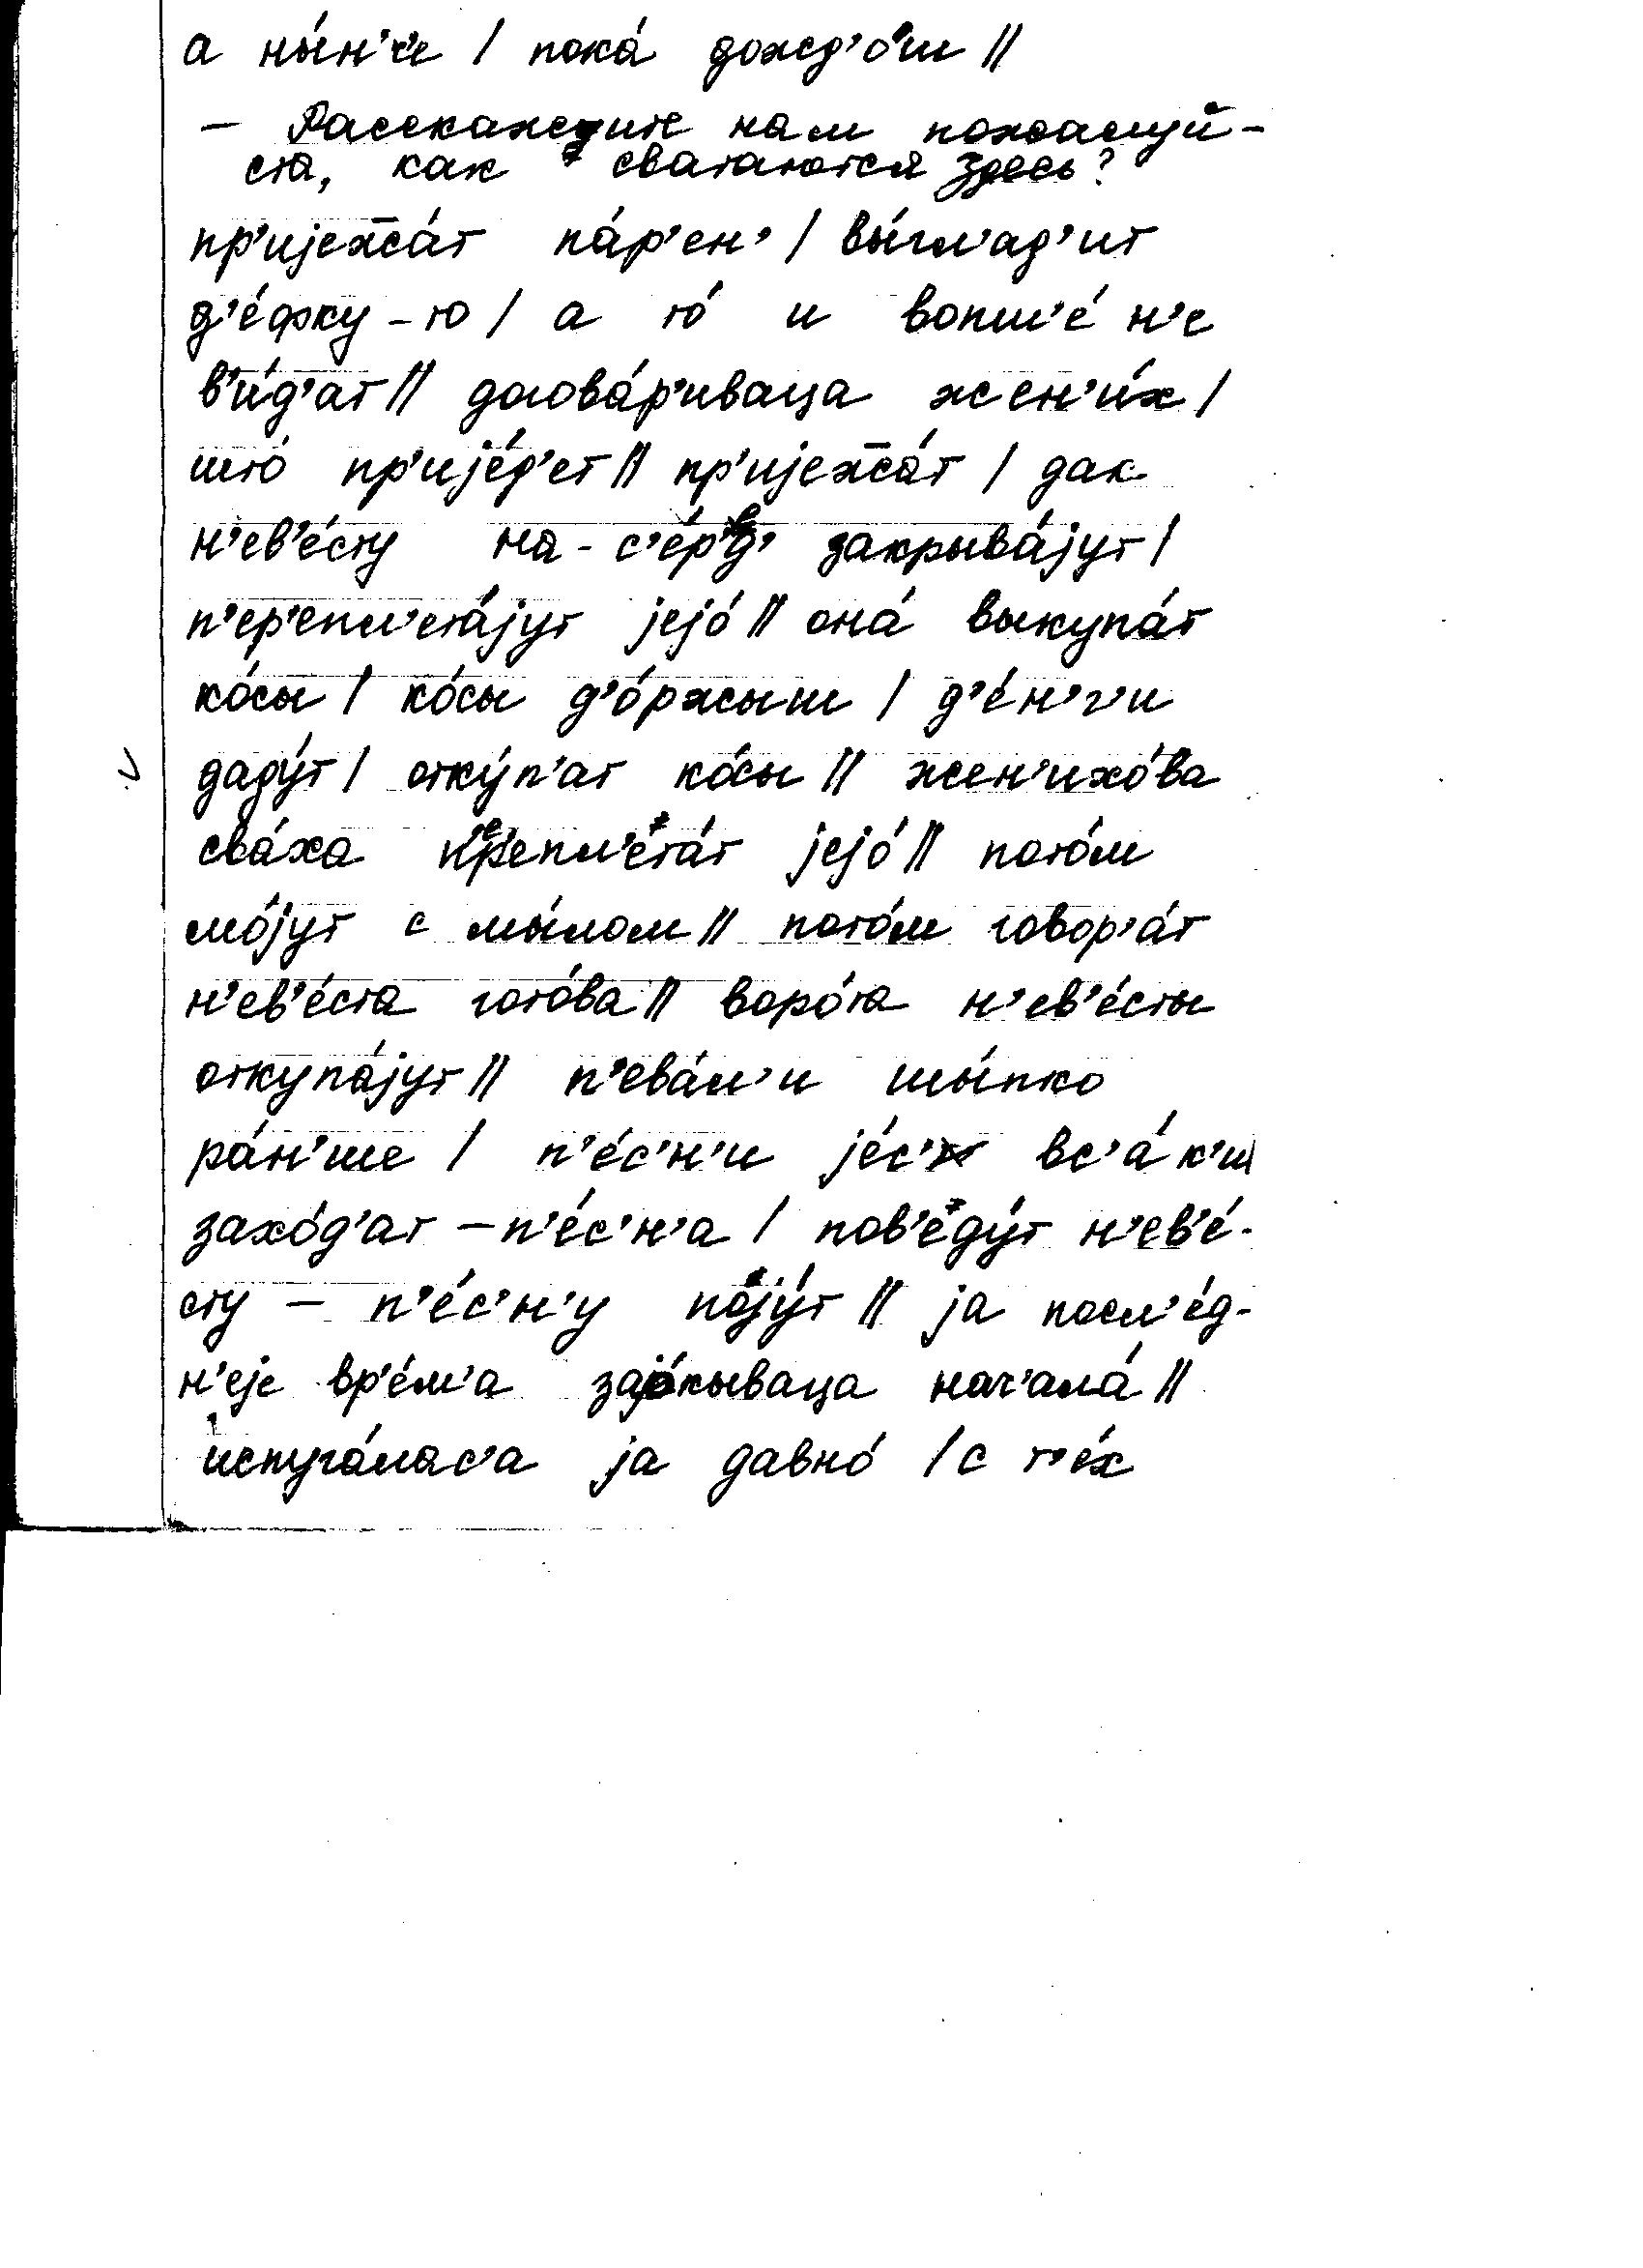 а ны́н'че / пока́ дожд'о́ш //
– Расскажите нам пожалуй-
ста, как сватаются здесь?
пр'ијеж̅а́т па́р'ен' / вы́гл'ад'ит
д'е́фку-то / а то́ и вопш'е́ н'е
в'и́д'ат // догова́р'иваца жен'и́х /
што́ пр'ије́д'ет // пр'ијеж̅а́т / дак
н'ев'е́сту на-с'е́р'д' закрыва́јут /
п'ер'епл'ета́јут јејо́ // она́ выкупа́т
ко́сы / ко́сы д'о́ржыш / д'е́н'г'и
даду́т / отку́п'ат ко́сы // жен'ихо́ва
сва́ха п'ер'епл'ета́т јејо́ // пото́м
мо́јут с мы́лом // пото́м говор'а́т
н'ев'е́ста гото́ва // воро́та н'ев'е́сты
откупа́јут // п'ева́л'и шы́пко
ра́н'ше / п'е́с'н'и је́с' вс'а́к'и
захо́д'ат – п'е́с'н'а / пов'еду́т н'ев'е́-
сту – п'е́с'н'у поју́т // ја посл'е́д-
н'еје вр'е́м'а зајо́кываца нач'ала́ //
испуга́лас'а ја давно́ / с т'е́х